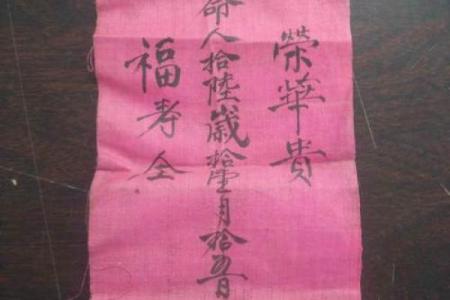 榮華貴
命人拾陸歲拾壹月拾五日
福寿全